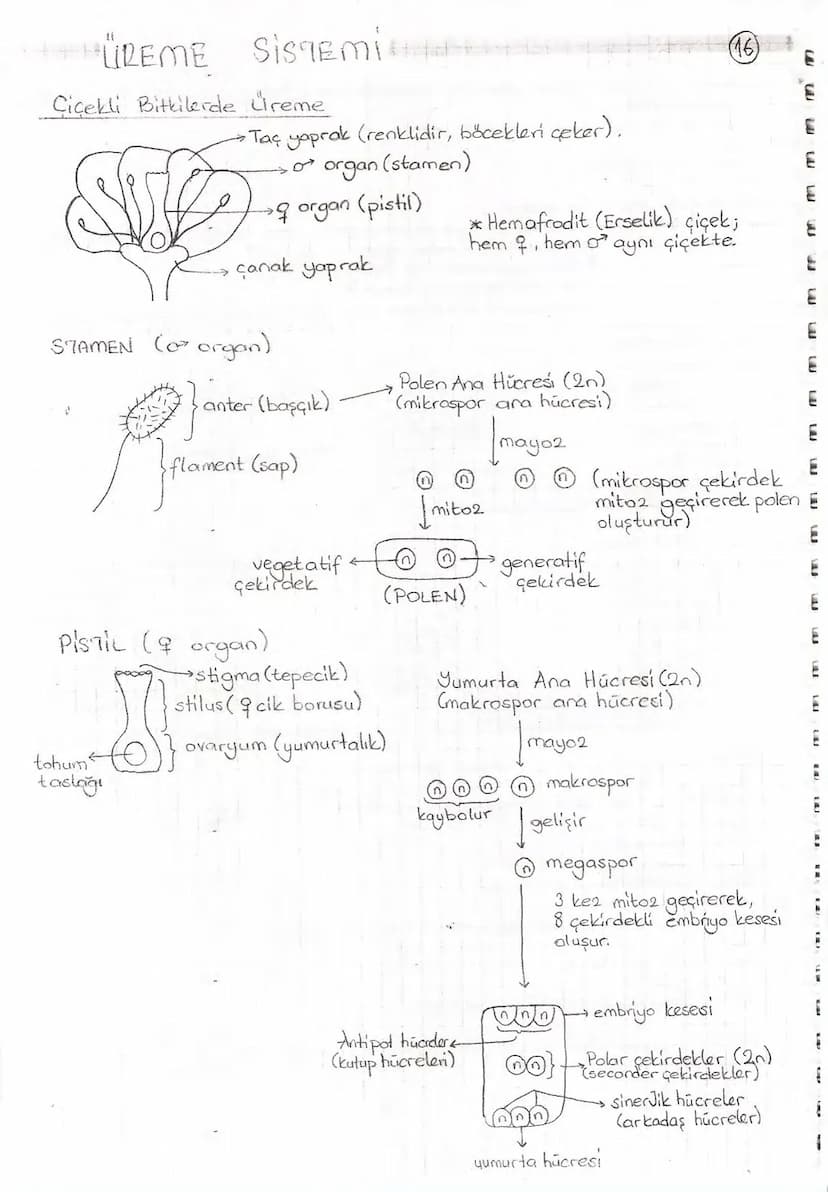 ÜREME SİSTEMİ
16
Çiçekli Bitkilerde Üreme
Taç yaprak (renklidir, böcekleri çeker).
♂ organ (stamen)
♀ organ (pistil)
* Hemafrodit (Erselik) çiçek;
hem ♀, hem ♂ aynı çiçekte.
çanak yaprak
STAMEN (♂ organ)
anter (başçık)
Polen Ana Hücresi (2n)
(mikrospor ana hücresi)
flament (sap)
mayoz
n n n n (mikrospor çekirdek
mitoz geçirerek polen
oluşturur)
mitoz
vegetatif
çekirdek
n n
generatif
çekirdek
(POLEN)
PİSTİL (♀ organ)
stigma (tepecik)
stilus (♀cik borusu)
ovaryum (yumurtalık)
tohum
taslağı
Yumurta Ana Hücresi (2n)
(makrospor ana hücresi)
mayoz
n n n n makrospor
kaybolur
gelişir
n megaspor
3 kez mitoz geçirerek,
8 çekirdekli embriyo kesesi
oluşur.
n n n
embriyo kesesi
Antipot hücreler
(kutup hücreleri)
n n
Polar çekirdekler (2n)
(seconder çekirdekler)
sinerjik hücreler
(arkadaş hücreler)
n n n
yumurta hücresi